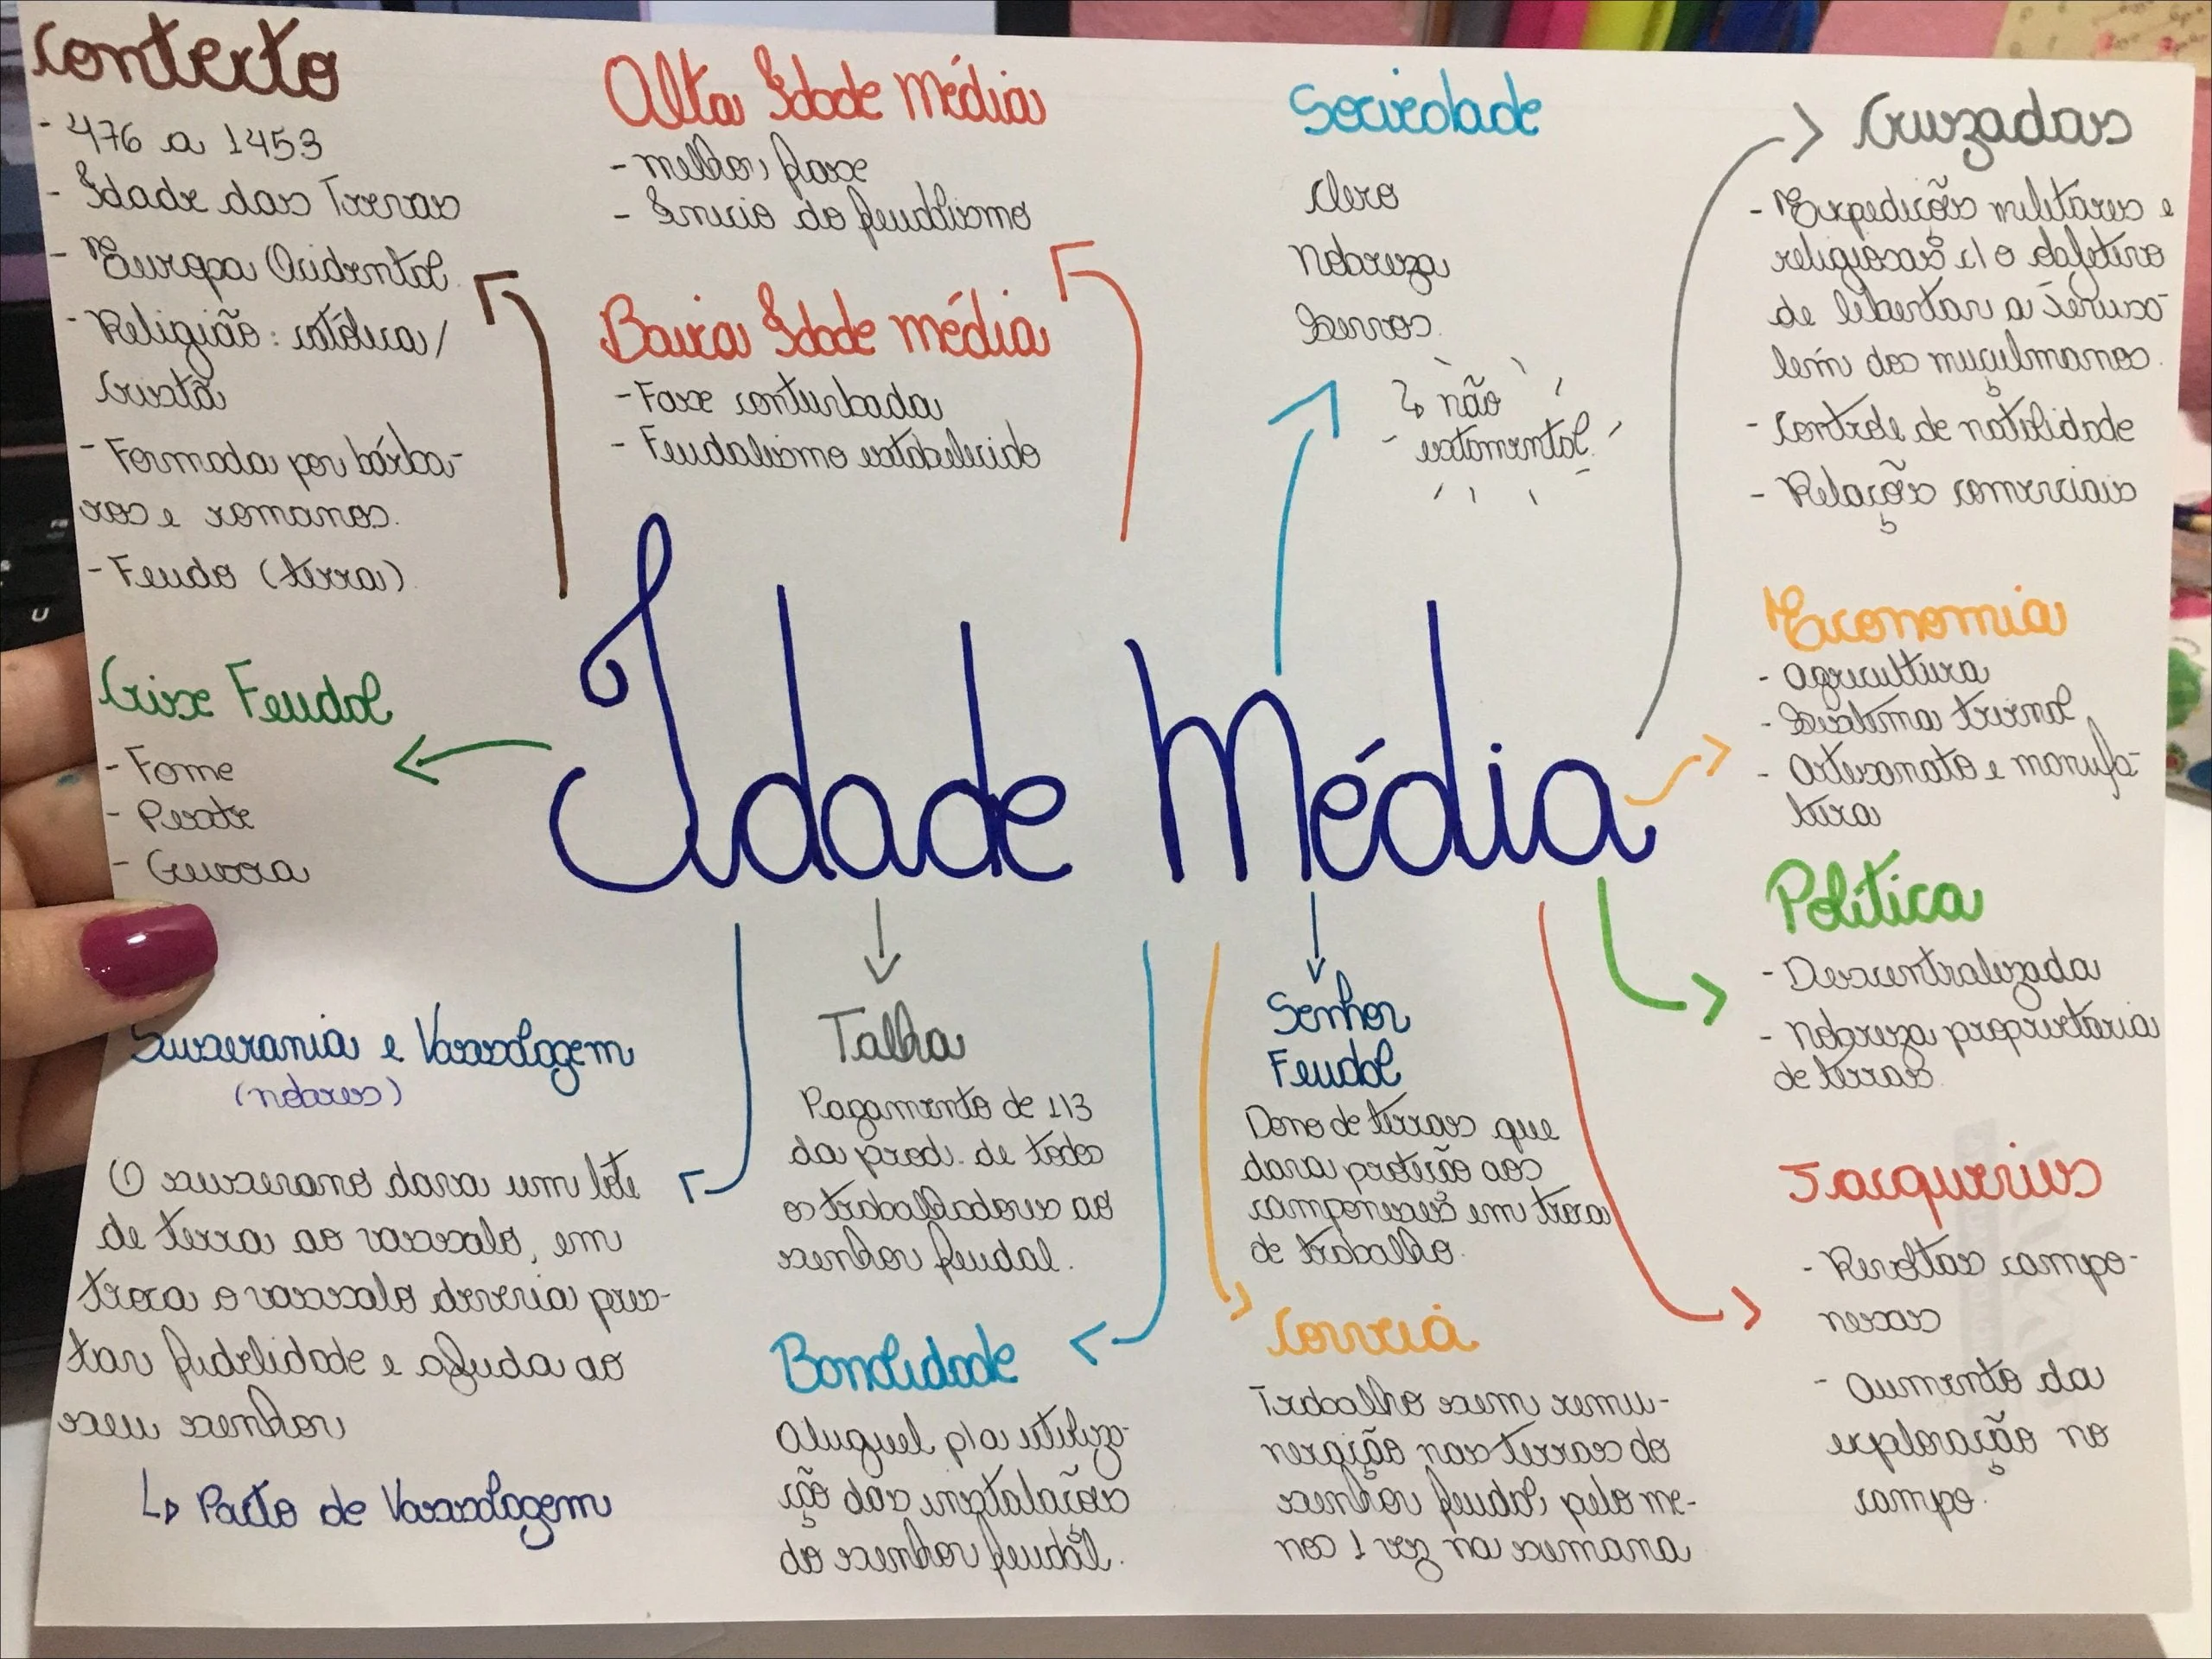 Contexto
- 476 a 1453
- Idade das Trevas
- Europa Ocidental
- Religião: católica/
Cristã
- Formada por bárba-
ros e romanos.
- Feudo (terra)
Alta Idade Média
- melhor fase
- Início do feudalismo
Baixa Idade Média
- Fase conturbada
- Feudalismo estabelecido
Sociedade
Clero
Nobreza
Servos.
↳ não
estamental
Cruzadas
- Expedições militares e
religiosas c/ o objetivo
de libertar a Jerusa-
lém dos muçulmanos.
- Controle de natilidade
- Relações comerciais
Idade Média
Crise Feudal
- Fome
- Peste
- Guerra
Economia
- Agricultura
- Sistema trienal
- Artesanato e manufa-
tura
Política
- Descentralizada
- Nobreza proprietária
de terras.
Suserania e Vassalagem
(nobres)
O suserano dava um lote
de terra ao vassalo, em
troca o vassalo deveria pres-
tar fidelidade e ajuda ao
seu senhor
↳ Pacto de Vassalagem
Talha
Pagamento de 1/3
da prod. de todos
os trabalhadores ao
senhor feudal.
Banalidade
Aluguel p/a utiliza-
ção das instalações
do senhor feudal.
Senhor
Feudal
Dono de terras que
dava proteção aos
camponeses em troca
de trabalho.
Corveia
Trabalho sem remu-
neração nas terras do
senhor feudal, pelo me-
nos 1 vez na semana
Jacqueries
- Revoltas campo-
nesas
- Aumento da
exploração no
campo.